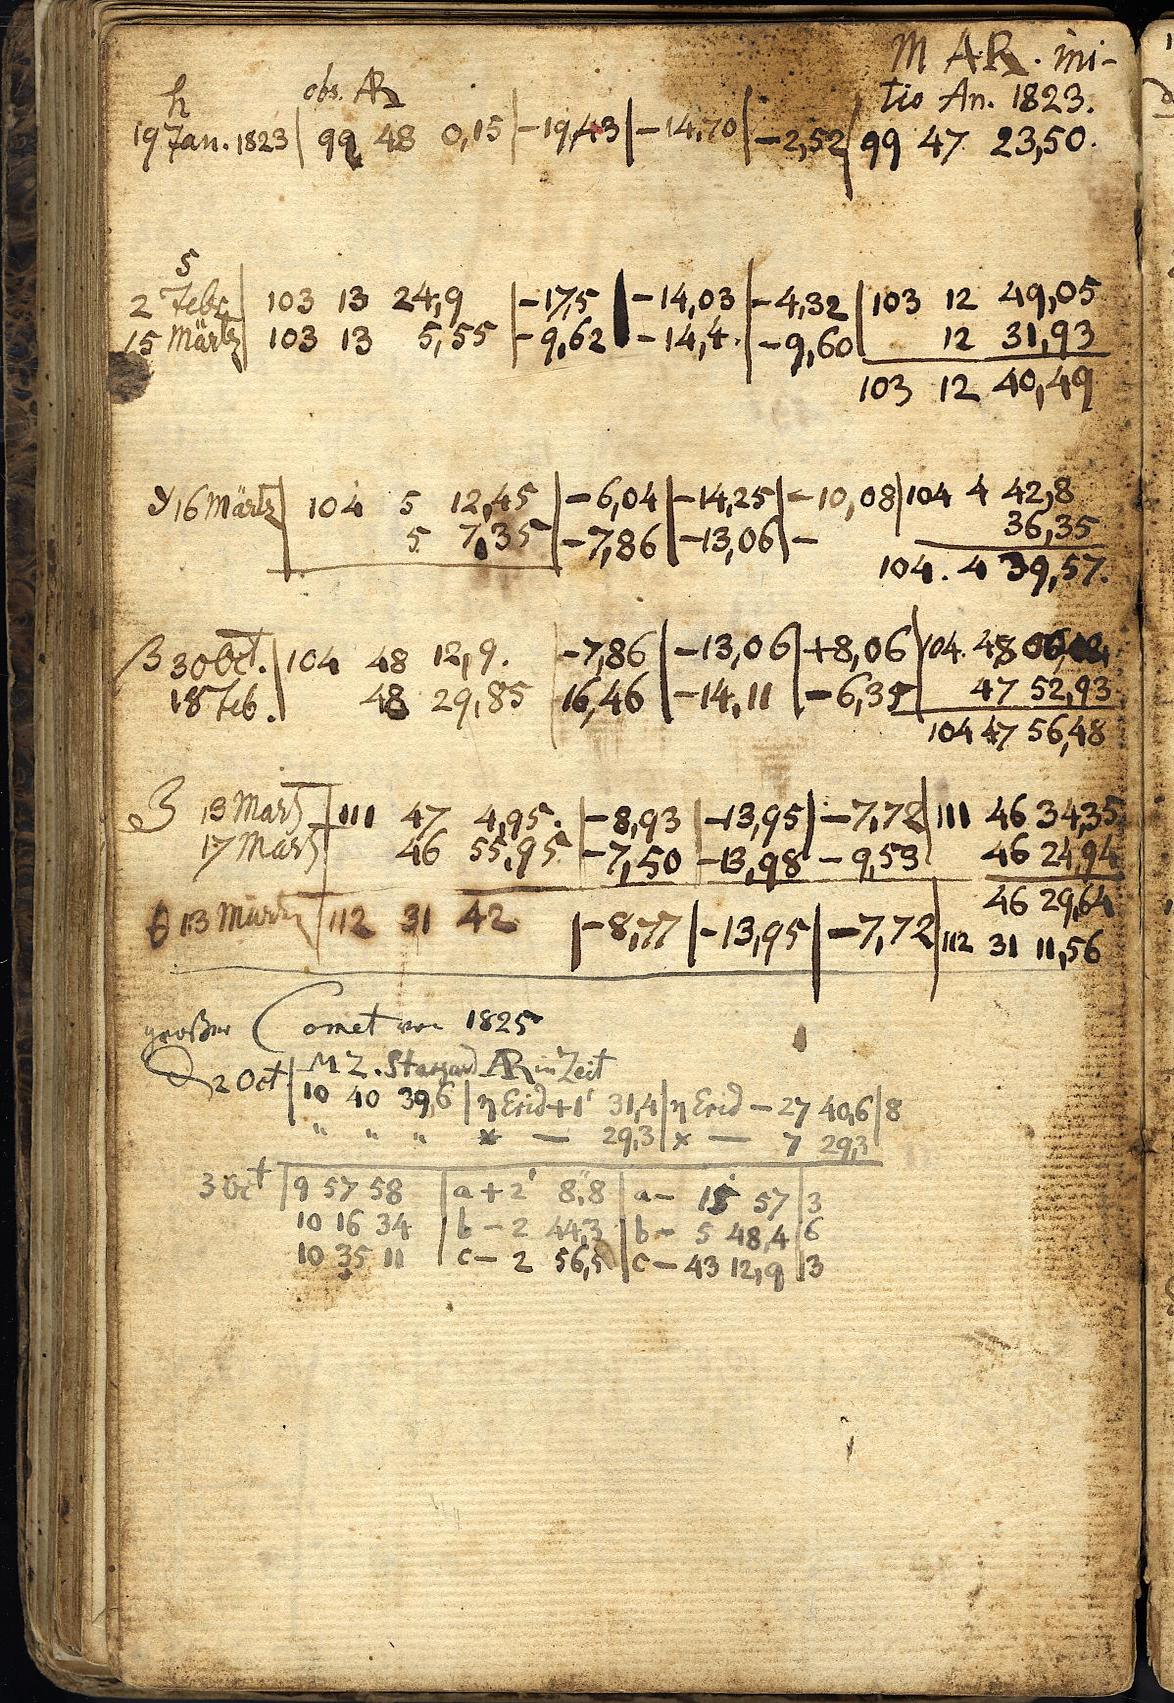 M AR. ini-
h obs. AR tio An. 1823.
19 Jan. 1823 | 99 48 0,15 | -19,43 | -14,70 | -2,52 | 99 47 23,50.
5
2 Febr | 103 13 24,9 | -17,5 | -14,03 | -4,32 | 103 12 49,05
15 Märtz | 103 13 5,55 | -9,62 | -14,4. | -9,60 | 12 31,93
103 12 40,49
16 Märtz | 104 5 12,45 | -6,04 | -14,25 | -10,08 | 104 4 42,8
5 7,35 | -7,86 | -13,06 | - 36,35
104. 4 39,57.
β 30 Oct. | 104 48 12,9. | -7,86 | -13,06 | +8,06 | 104. 48
18 Feb. | 48 29,85 | 16,46 | -14,11 | -6,35 | 47 52,93
104 47 56,48
13 Martz | 111 47 4,95. | -8,93 | -13,95 | -7,72 | 111 46 34,35
17 Martz | 46 55,95 | -7,50 | -13,98 | -9,53 | 46 24,94
46 29,64
θ 13 Martz | 112 31 42 | -8,77 | -13,95 | -7,72 | 112 31 11,56
großer Comet von 1825
M Z. Stargard AR in Zeit
2 Oct | 10 40 39,6 | η Erid +1' 31,4 | η Erid - 27 40,6 | 8
" " " * - 29,3 | * - 7 29,3
3 Oct | 9 57 58 | a + 2' 8,8 | a - 15' 57 | 3
10 16 34 | b - 2 44,3 | b - 5 48,4 | 6
10 35 11 | c - 2 56,5 | c - 43 12,9 | 3